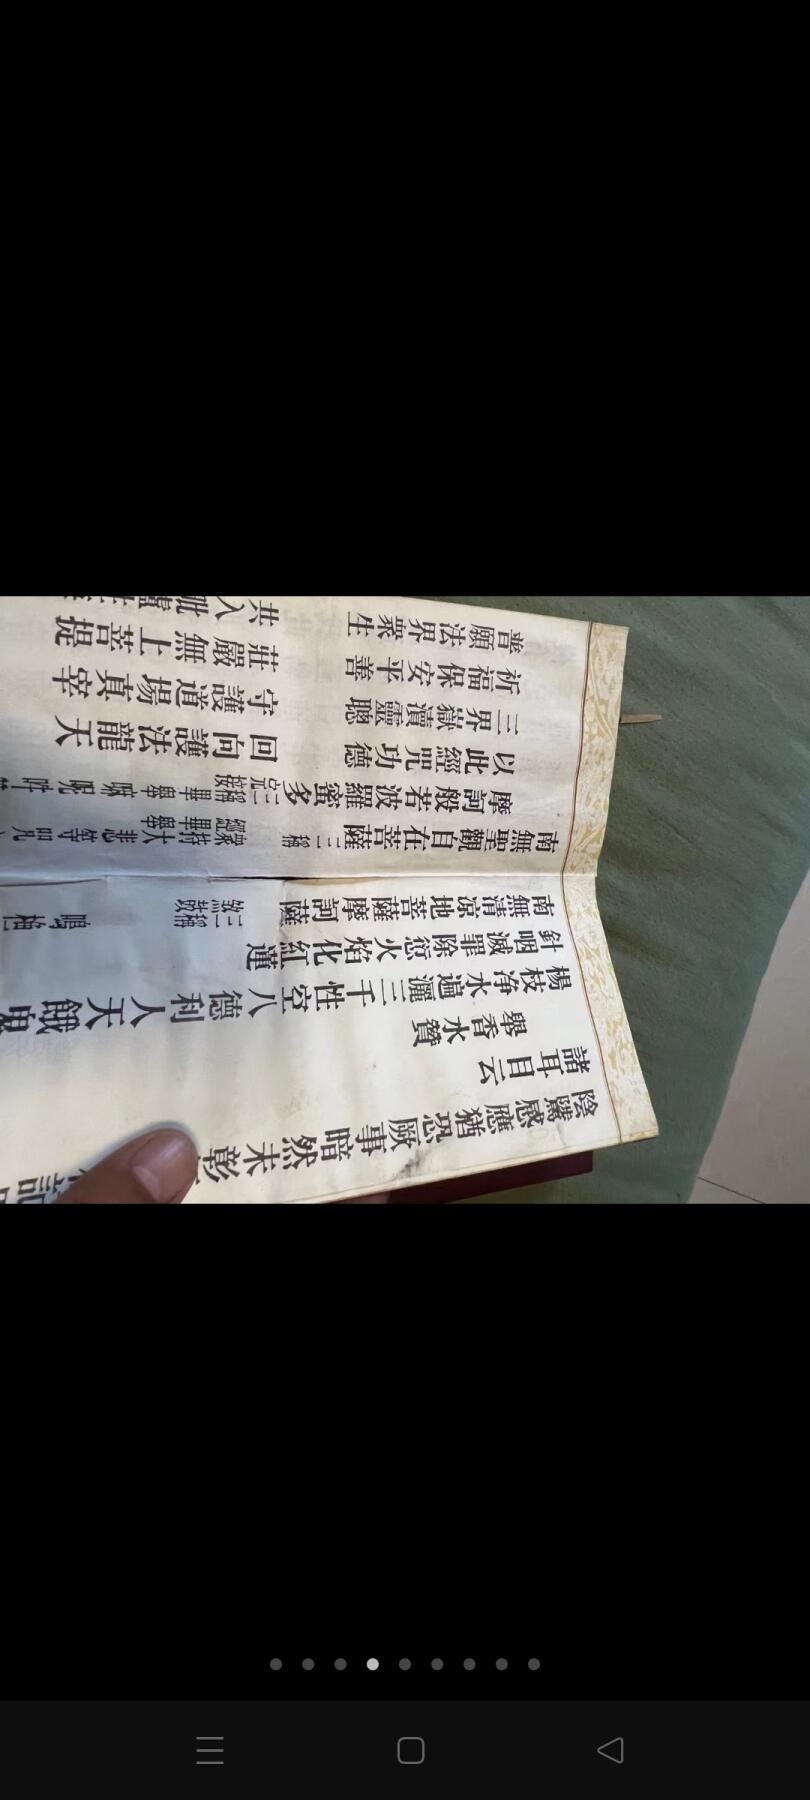 陰隲感應猶恐厥事暗然未彰
諸耳目云
舉香水贊
楊枝净水遍灑三千性空八德利人天餓鬼
針咽滅罪除愆火焰化紅蓮
南無清凉地菩薩摩訶薩 三稱
南無聖觀自在菩薩 三稱 衆持大悲等咒 經畢舉
摩訶般若波羅蜜多 三稱畢舉
以此經咒功德 回向護法龍天
三界嶽瀆靈聰 守護道場真宰
祈福保安平善 莊嚴無上菩提
普願法界衆生 共入毗